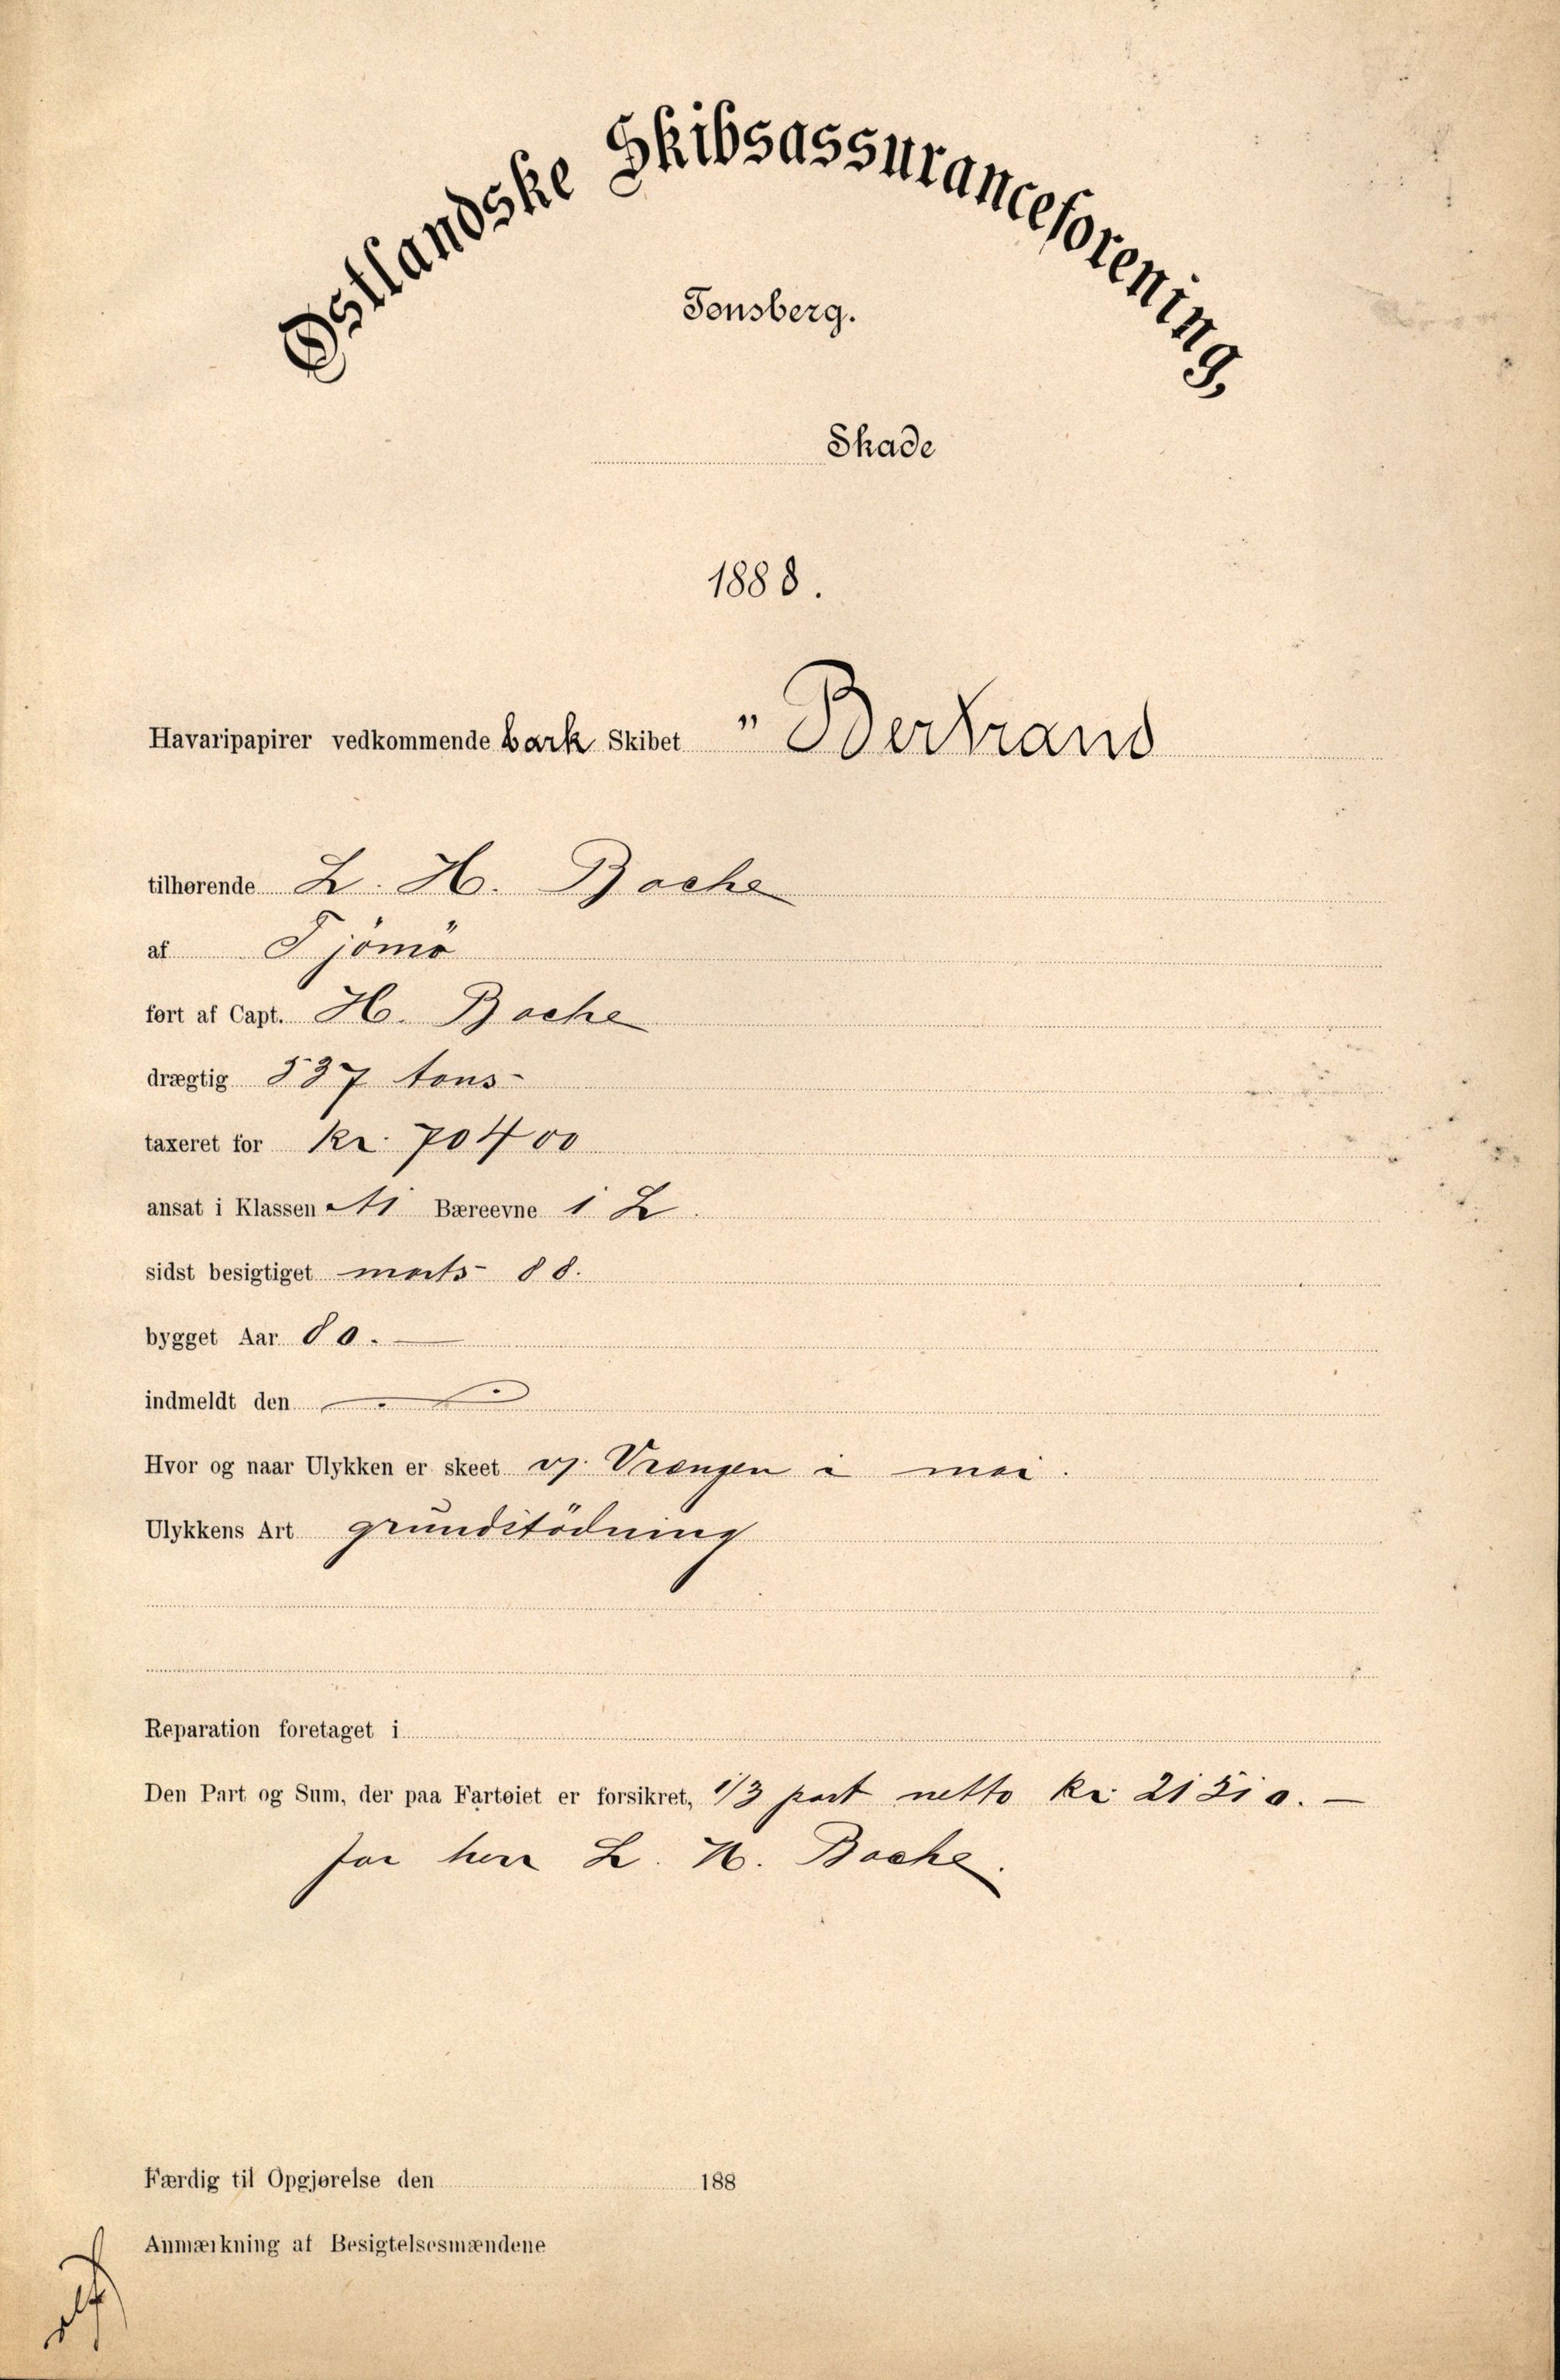 Østlandske Skibsassuranceforening,
Tønsberg.
Skade
1888.
Havaripapirer vedkommende bark Skibet " Bertrand
tilhørende L. H. Bache
af Tjömö
ført af Capt. H. Bache
drægtig 537 tons
taxeret for kr. 70400
ansat i Klassen A1 Bæreevne 1 L.
sidst besigtiget marts 88.
bygget Aar 80. —
indmeldt den
Hvor og naar Ulykken er skeet v/ Vrengen i mai.
Ulykkens Art grundstödning
Reparation foretaget i
Den Part og Sum, der paa Fartøiet er forsikret, 1/3 part netto kr 21510. —
for herr L. H. Bache.
Færdig til Opgjørelse den 188
Anmærkning af Besigtelsesmændene